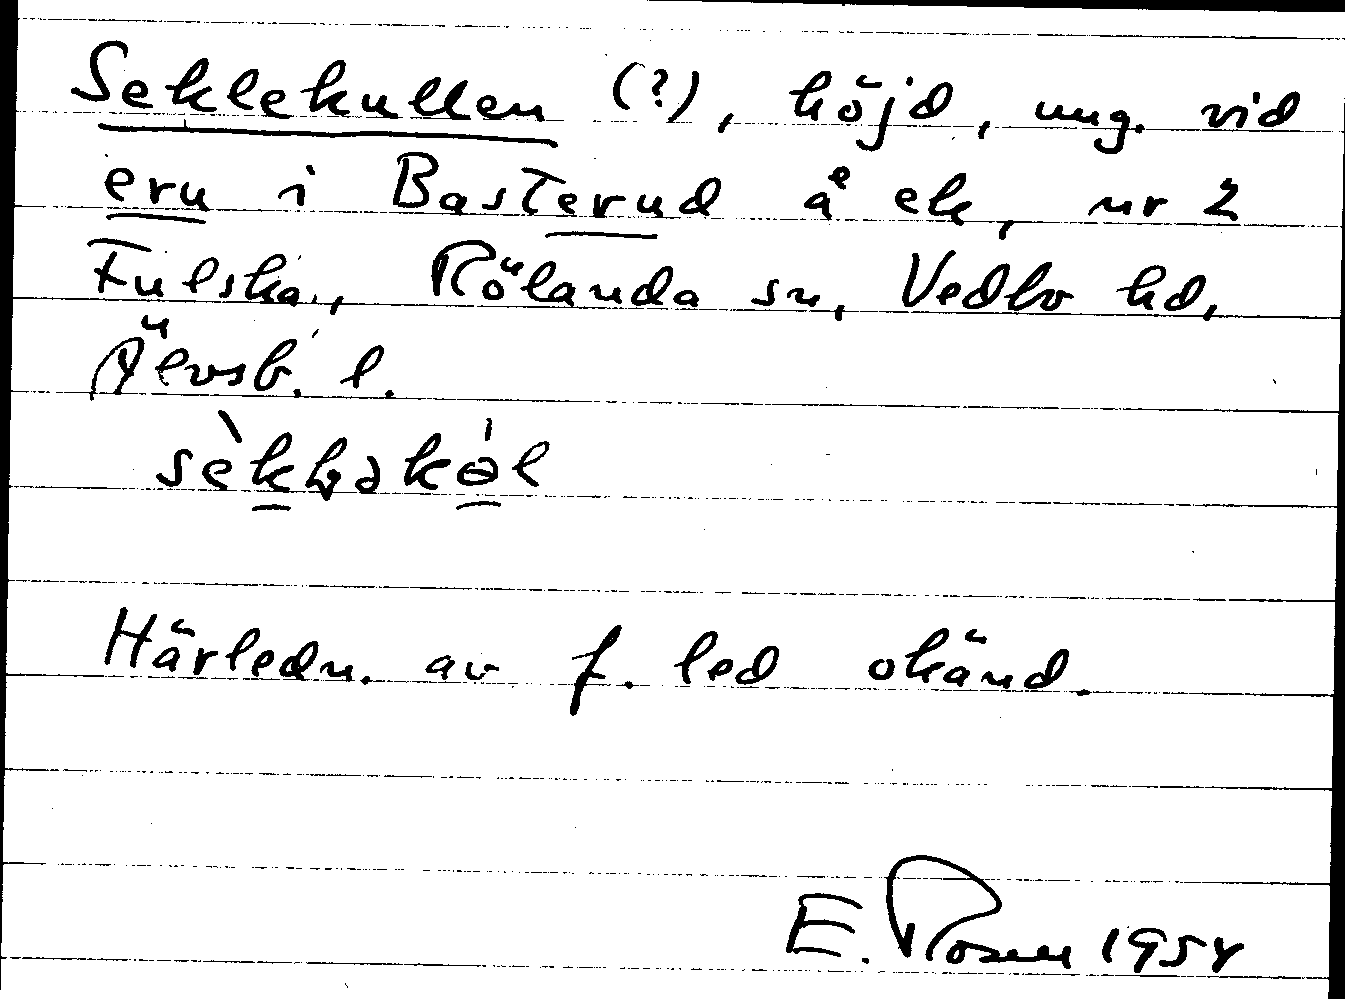 Seklekullen (?), höjd, ung. vid
eru i Basterud å ek, nr 2
Fulska., Rölanda sn, Vedbo hd,
Älvsb. l.
Härledn. av f. led okänd.
E. Rosen